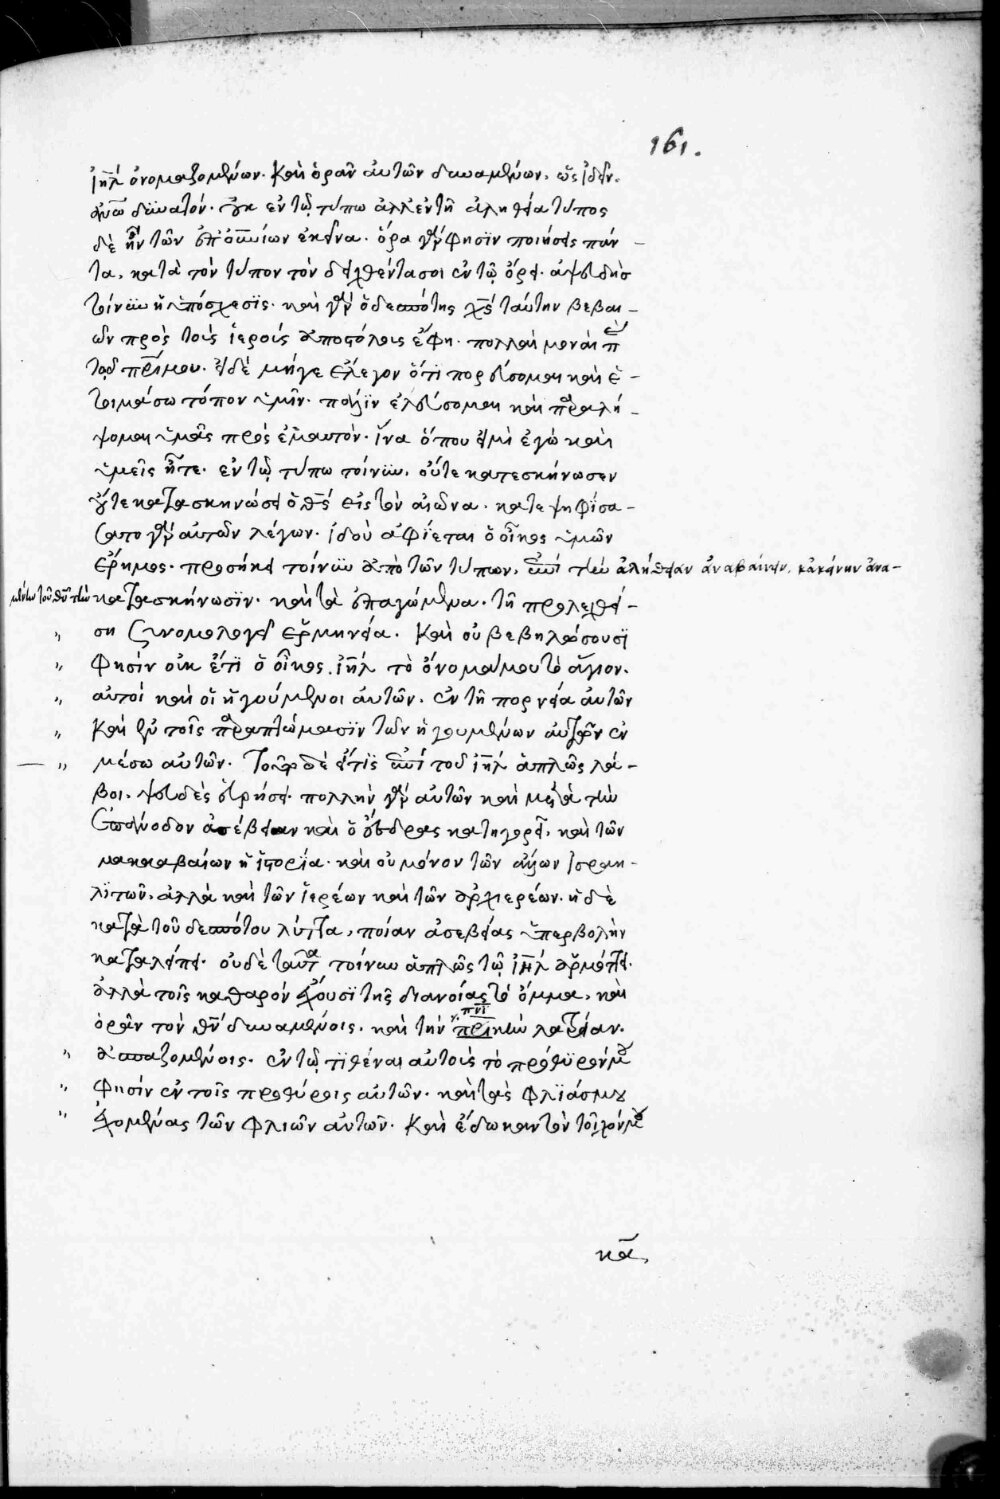 161.
ἰηλ̄ ὀνομαζομένων. καὶ ὁρᾶν αὐτῶν δυναμένων, ὡς ἰδεῖν
δυνατόν. οὐκ ἐν τῷ τύπω ἀλλ' ἐν τῇ ἀληθεία τύπος
δὲ ἦν τῶν ἐκεῖνα. ὅρα γάρ φησὶν ποιήσεις πάν -
τα, κατὰ τὸν τύπον τὸν δειχθέντα σοι ἐν τῷ ὄρει. ἀψευδὴς
τοίνυν ἡ ὑπόσχεσις. καὶ γὰρ ὁ δεσπότης χς̄ ταύτην βεβαι -
ῶν πρὸς τοὺς ἱεροὺς ἀποστόλους ἔφη. πολλαὶ μοναὶ π
τοῦ πρ̄ς μου. εἰ δὲ μήγε ἔλεγον ὅτι πορεύσομαι καὶ ἑ -
τοιμάσω τόπον ὑμῖν. πάλιν ἐλεύσομαι καὶ παραλή -
ψομαι ὑμᾶς πρὸς ἐμαυτὸν. ἵνα ὅπου εἰμὶ ἐγὼ καὶ
ὑμεῖς ἦτε. ἐν τῷ τύπω τοίνυν, οὔτε κατεσκήνωσεν
οὔτε κατασκηνώσει ὁ θς̄ εἰς τὸν αἰῶνα. κατεψηφίσα -
το γὰρ αὐτῶν λέγων. ἰδοὺ ἀφίεται ὁ οἶκος ὑμῶν
ἔρημος. προσήκει τοίνυν ἀπὸ τῶν τύπων, ἐπὶ τὴν ἀλήθειαν ἀναβαίνειν, κἀκείνην ἀνα -
μένειν τοῦ θῡ τὴν κατασκήνωσιν. καὶ τὰ ἐπαγόμενα. τῇ προλεχθεί -
ση συνομολογεῖ ἑρμηνεία. καὶ οὐ βεβηλώσουσι
φησὶν οὐκ ἔτι ὁ οἶκος ἰηλ̄ τὸ ὄνομά μου τὸ ἅγιον.
αὐτοὶ καὶ οἱ ἡγούμενοι αὐτῶν. ἐν τῇ πορνεία αὐτῶν
καὶ ἐν τοῖς παραπτώμασιν τῶν ἡγουμένων αὐτῶν ἐν
μέσω αὐτῶν. τοῦτο δὲ εἴ τις ἐπὶ τοῦ ἰηλ̄ ἁπλῶς λά -
βοι, ψευδὲς εὑρήσει. πολλὴν γὰρ αὐτῶν καὶ μετὰ τὴν
ἐπάνοδον ἀσέβειαν καὶ ὁ ἔσδρας κατηγορεῖ, καὶ τῶν
μακκαβαίων ἡ ἱστορία. καὶ οὐ μόνον τῶν ἄλλων ἰσραη -
λιτῶν, ἀλλὰ καὶ τῶν ἱερέων καὶ τῶν ἀρχιερέων. ἡ δὲ
κατὰ τοῦ δεσπότου λύττα, ποίαν ἀσεβείας ὑπερβολὴν
καταλείπει. οὐδὲ ταῦτα τοίνυν ἁπλῶς τῷ ἰηλ̄ ἁρμόττει.
ἀλλὰ τοῖς καθαρὸν ἔχουσι τῆς διανοίας τὸ ὄμμα, καὶ
ὁρᾶν τὸν θν̄ δυναμένοις. καὶ τὴν πρικὴν λατρείαν.
ἀσπαζομένοις. ἐν τῷ τιθέναι αὐτοὺς τὸ πρόθυρόν μου
φησὶν ἐν τοῖς προθύροις αὐτῶν. καὶ τὰς φλιάς μου
ἐχομένας τῶν φλιῶν αὐτῶν. καὶ ἔδωκαν τὸν τοῖχόν μου
κᾱ,